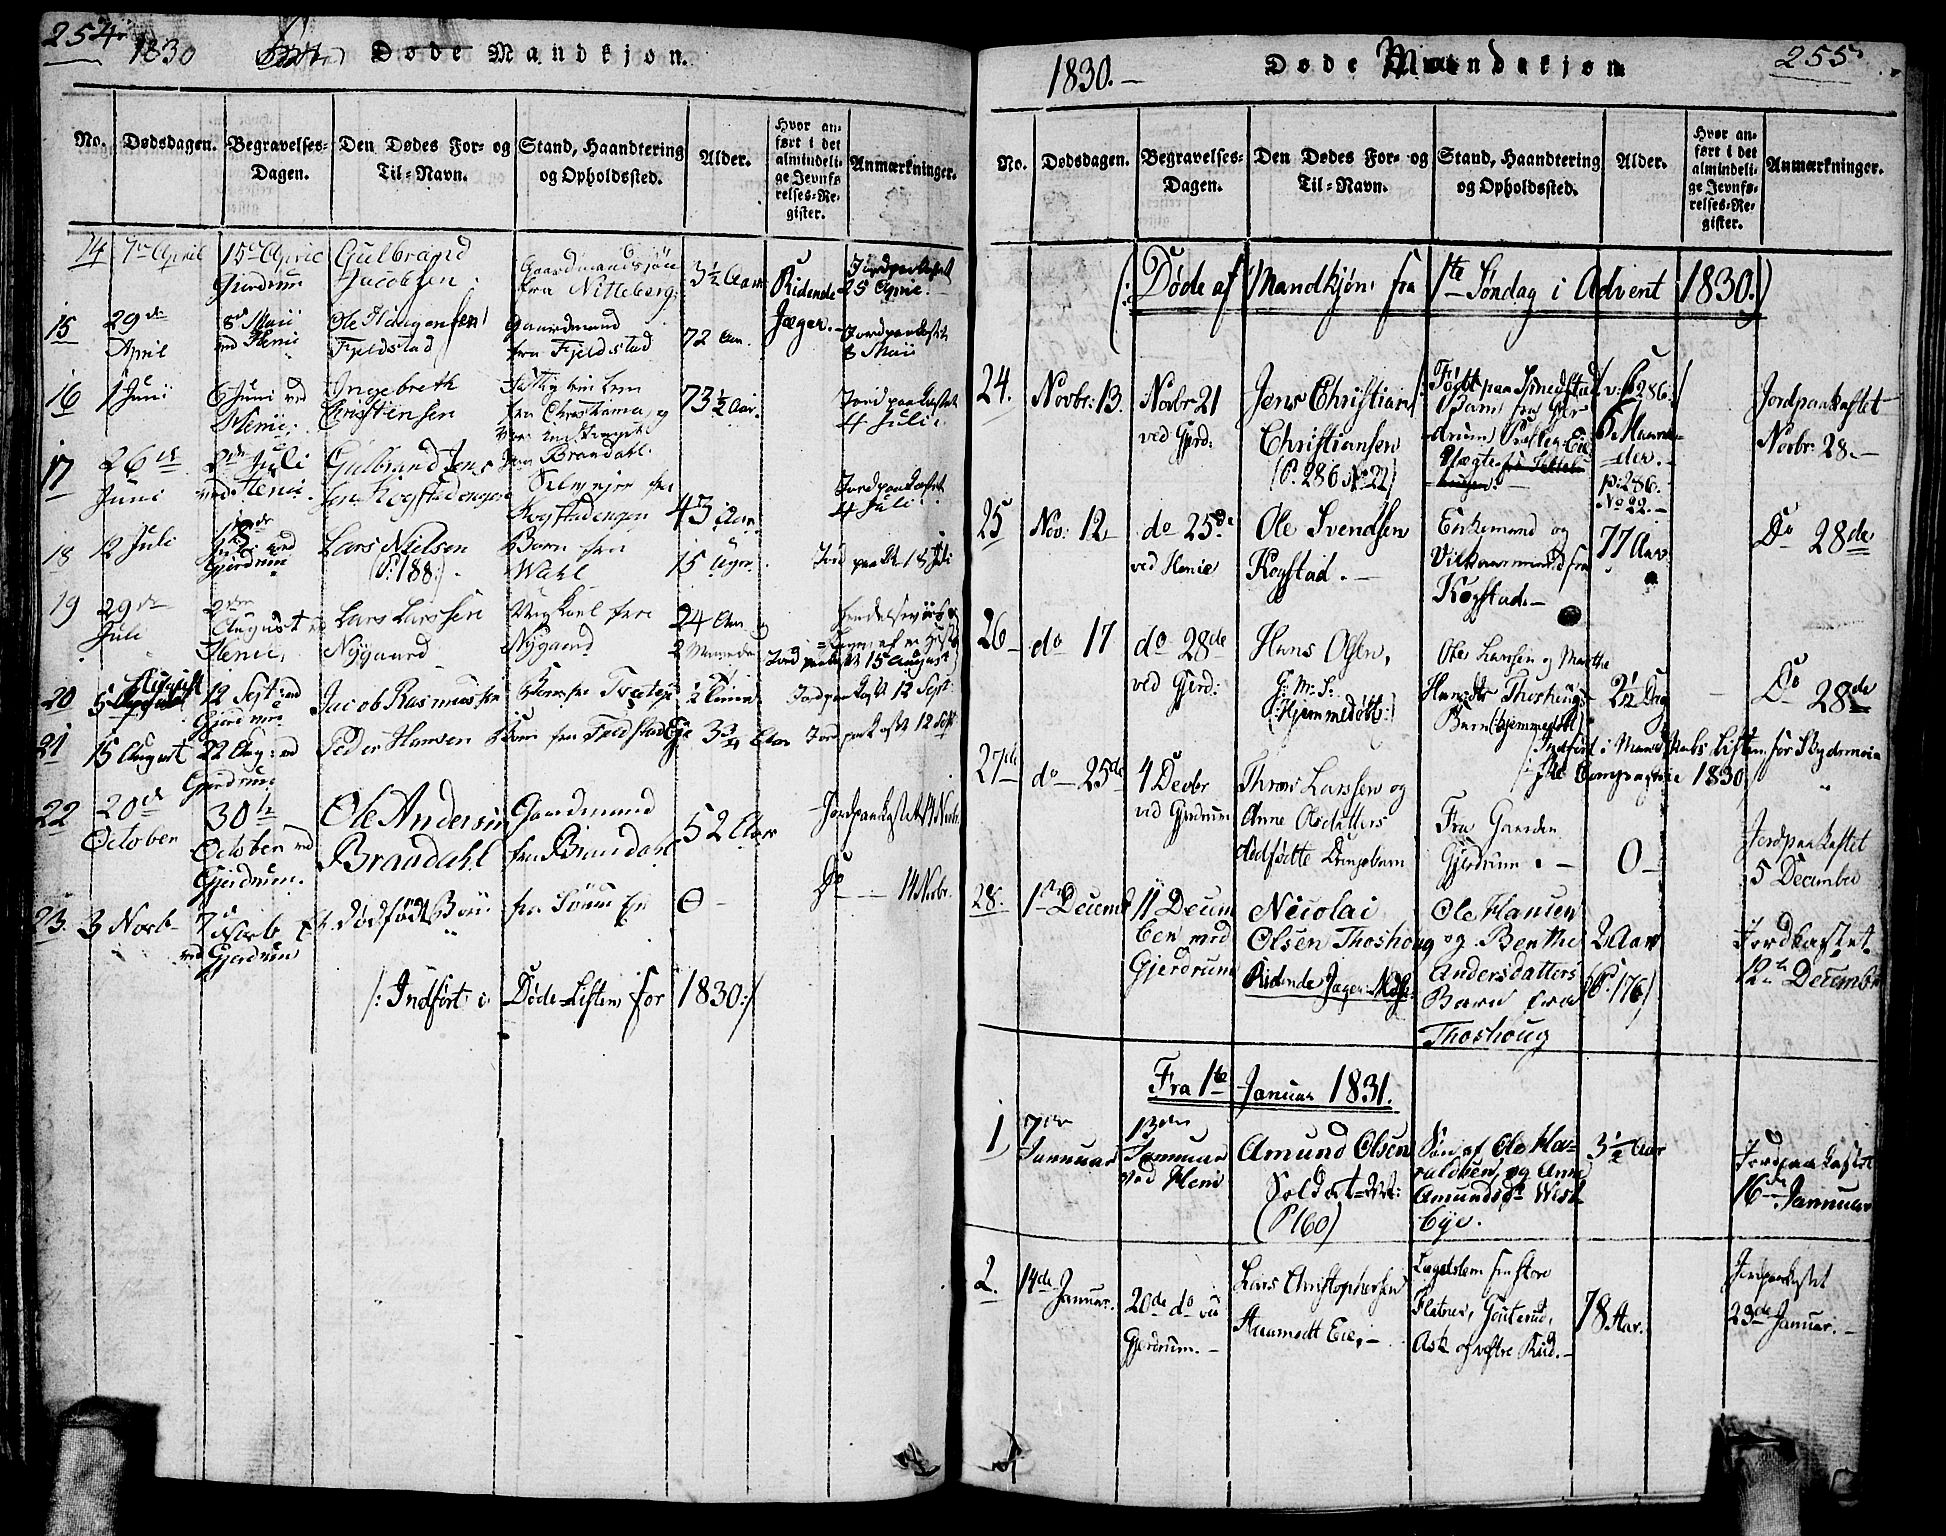 254.
1830
Døde Mandkjøn.
No.
Dødsdagen.
Begravelses-
Dagen.
Den Dødes For- og
Til-Navn.
Stand, Haandtering
og Opholdssted.
Alder.
Hvor an-
ført i det
almindeli-
ge Jevnfø
relses-Re-
gister.
Anmærkninger.
14
7de April
15de April
Gjerdrum
Gulbrand
Jacobsen.
Gaardmandssøn
fra Nitteberg.
3½ Aar
Ridende
Jæger.
Jordpaakastet
25 April.
15
29de
April
8de Maii
ved Henie
Ole Haagensen
Fjeldstad
Gaardmand
fra Fjeldstad
72 Aar.
Jordpaakastet
8 Maii
16
1 Juni
6 Juni ved
Henie.
Ingebreth
Christensen
fra Christiania, og
73½ Aar.
Jordpaakastet
4 Juli.
17
26de
Juni
2de Juli
ved Henie.
Gulbrand Jens
sen Kogstadengen
Brandahl.
Selveyer fra
Kogstadengen
43 Aar.
Jordpaakastet
4 Juli.
18
12 Juli
18de
Juli ved
Gjerdrum
Lars Nielsen
(P. 188.)
Barn fra
Wahl
15 Uger.
Jordpaak 18 Juli
19
29de
Juli
2den
August ved
Henie.
Lars Larssen
Nygaard
Ung Karl fra
Nygaard
24 Aar
2 Maaneder
Jordpaakast 15 August
20
5 August
12 Sept: ved
Gjerdrum
Jacob Rasmussen
Barn fra
2 Timer
Jordpaakast 12 Sept:
21
15 August
22 Aug: ved
Gjerdrum
Peder Hansen
Barn fra Fjeldstad Eje
3¾ Aar
Jordpaakastet 12 Sept
22
20de
October
30te
October ved
Gjerdrum.
Ole Andersen
Brandahl
Gaardmand
fra Brandahl
52 Aar
Jordpaakastet 14 Novbr.
23.
3 Novb
7de
Novb
ved Gjerdrum
Et dødfødt Barn
fra Sørum Eje
0
Do 14 Novbr.
/: Indført i Døde-Listen for 1830:/
1830.
Døde Mandskjøn
255.
No.
Dødsdagen.
Begravelses-
Dagen.
Den Dødes For- og
Til-Navn.
Stand, Haandtering
og Opholdssted.
Alder.
Hvor an-
ført i det
almindeli-
ge Jevnfø-
relses-Re-
gister.
Anmærkninger.
(: Døde af Mandkjøn fra 1te Søndag i Advent 1830.)
24.
Novbr: 13.
Novbr 21
ved Gjerd:
Jens Christian
Christiansen
(P. 286 No 22)
p: 286.
No 22.
Jordpaakastet
Novbr: 28.
25
Nov: 12
do 25de
ved Henie
Ole Svendsen
Kogstad.
Enkemand og
Vilkaarmand fra
Kogstad.
77 Aar
Do 28de
26
do 17
do 28de
ved Gjerd:
Hans Olsen,
(Hjemmedøbt:)
Ole Larssen og Marthe
Hansdtr Thoshougs
Barn (hjemmedøbt)
2½ Dag
Do 28de
27de
do 25de
4 Decbr
ved Gjerdrum
Thron Larssen og
Anne Olsdatters
dødfødte Drengebarn
Indført i Mandskabs Listen for Skydsmoie
Compagnie 1830
Fra Gaarden
Gjerdrum.
0
Jordpaakastet
5 December
28.
1ste Decemb
11 Decem
ber ved
Gjerdrum
Nicolai
Olsen Thoshoug
Ridende Jæger
Ole Hansen
og Berthe
Andersdatters
Barn fra
Thoshoug
2 Aar
(P. 176)
Jordkastet
12te December
Fra 1te Januar 1831.
1
7de
Januar
13de
Januar
ved Henie
Amund Olsen
Soldat
(P 160)
Søn af Ole Ha-
raldsen og Anne
Amundsdtr
Eye.
3½ Aar
Jordpaakastet
16de Januar
2.
14de
Januar.
20de do ved
Gjerdrum.
Lars Christophersen
Eie,
Lægdslem fra store
Ask og vestre Rud.
78 Aar.
Jordpaakastet
23de Januar.